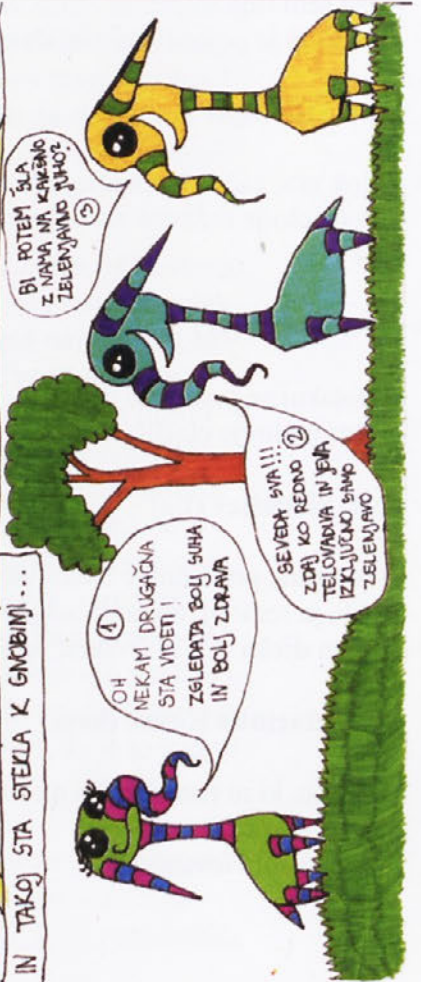 IN TAKOJ STA STEKLA K GNOBINJI...
1
OH
NEKAM DRUGAČNA
STA VIDETI!
ZGLEDATA BOLJ SUHA
IN BOLJ ZDRAVA
SEVEDA SVA!!!
ZDAJ KO REDNO 2
TELOVADIVA IN JEVA
IZKLJUČNO SAMO
ZELENJAVO
BI POTEM ŠLA
Z NAMA NA KAKŠNO
ZELENJAVNO JUHO?
3